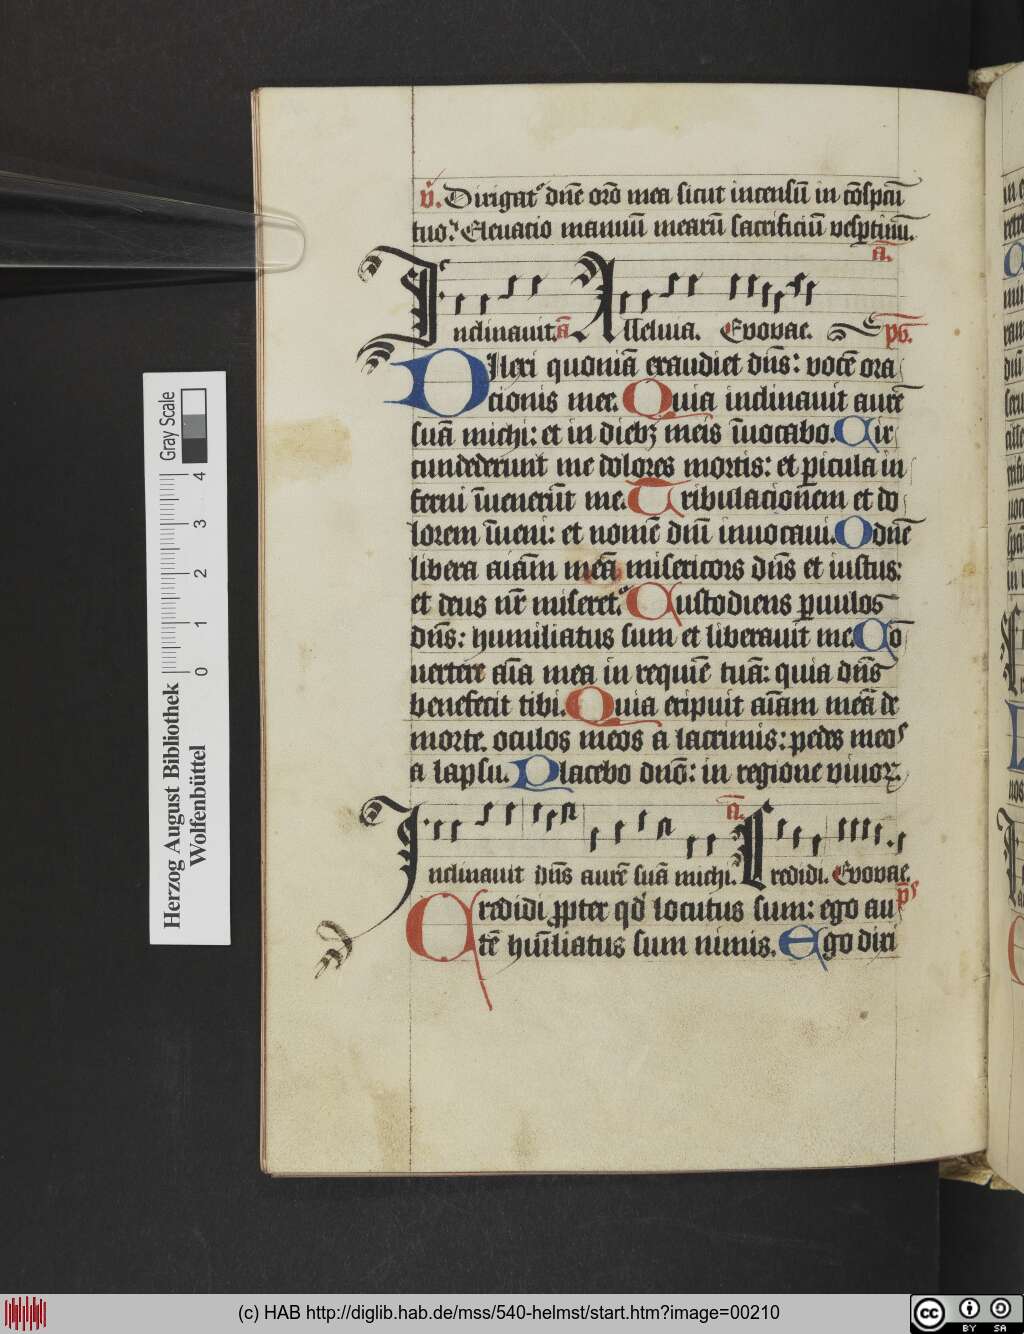 v̄. Dirigat᷑ dn̄e or̄o mea sicut incensū in cōspcū
tuo. Eleuacio manuū mearū sacrificiū vesp̱tinū.
ā.
Inclinauit. ā Alleluia. Evovae. ps̄.
Dilexi quoniā exaudiet dn̄s: vocē ora
cionis mee. Quia inclinauit aurē
suā michi: et in diebꝫ meis īuocabo. Cir
cumdederunt me dolores mortis: et p̱icula in
ferni īuenerūt me. Tribulacionem et do
lorem īueni: et nomē dn̄i inuocaui. O dn̄e
libera aīam meā misericors dn̄s et iustus:
et deus nr̄ miseret᷑. Custodiens p̱uulos
dn̄s: humiliatus sum et liberauit me. Cō
uertere aīa mea in requiē tuā: quia dn̄s
benefecit tibi. Quia eripuit aīam meā de
morte. oculos meos a lacrimis: pedes meos
a lapsu. Placebo dn̄o: in regione viuoꝝ.
ā.
Inclinauit dn̄s aurē suā michi. Credidi. Evovae.
ps̄
Credidi ꝓpter qd̄ locutus sum: ego au
tē hūiliatus sum nimis. Ego dixi
Herzog August Bibliothek
Wolfenbüttel
0 1 2 3 4
Gray Scale
(c) HAB http://diglib.hab.de/mss/540-helmst/start.htm?image=00210
cc BY SA